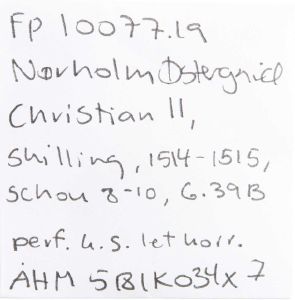 FP 10077.19
Nørholm Østergård
Christian II,
Skilling, 1514-1515,
Schou 8-10, G. 39B
perf. h.s. let korr.
ÅHM 5 1581K034X 7